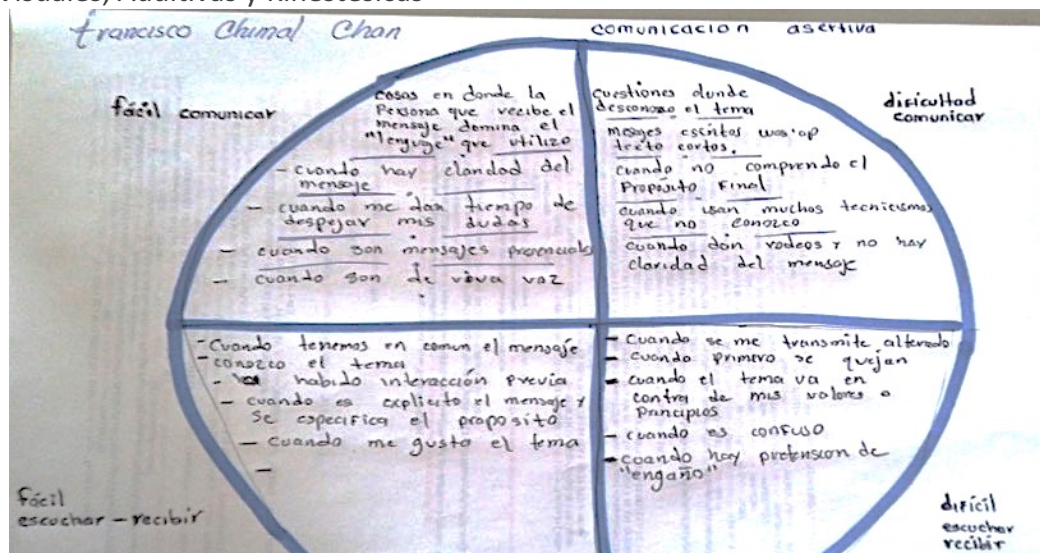 Visuales, Auditivas y Kinestésicas
Francisco Chimal Chan
comunicacion asertiva
fácil comunicar
cosas en donde la
Persona que recibe el
mensaje domina el
"lenguge" que utilizo
- cuando hay claridad del
mensaje
- cuando me dan tiempo de
despejar mis dudas
- cuando son mensajes presenciales
- cuando son de viva voz
cuestiones dunde
desconozco el tema
mesajes escritos was'ap
texto cortos.
cuando no comprendo el
Proposito Final
cuando usan muchos tecnicismos
que no conozco
cuando dan rodeos y no hay
claridad del mensaje
dificultad
comunicar
- Cuando tenemos en comun el mensaje
- conozco el tema
- ha habido interacción previa
- cuando es explicito el mensaje y
se especifica el proposito
- cuando me gusta el tema
-
fácil
escuchar - recibir
- Cuando se me transmite alterado
- cuando primero se quejan
- cuando el tema va en
contra de mis valores o
principios
- cuando es confuso
- cuando hay pretension de
"engaño"
difícil
escuchar
recibir